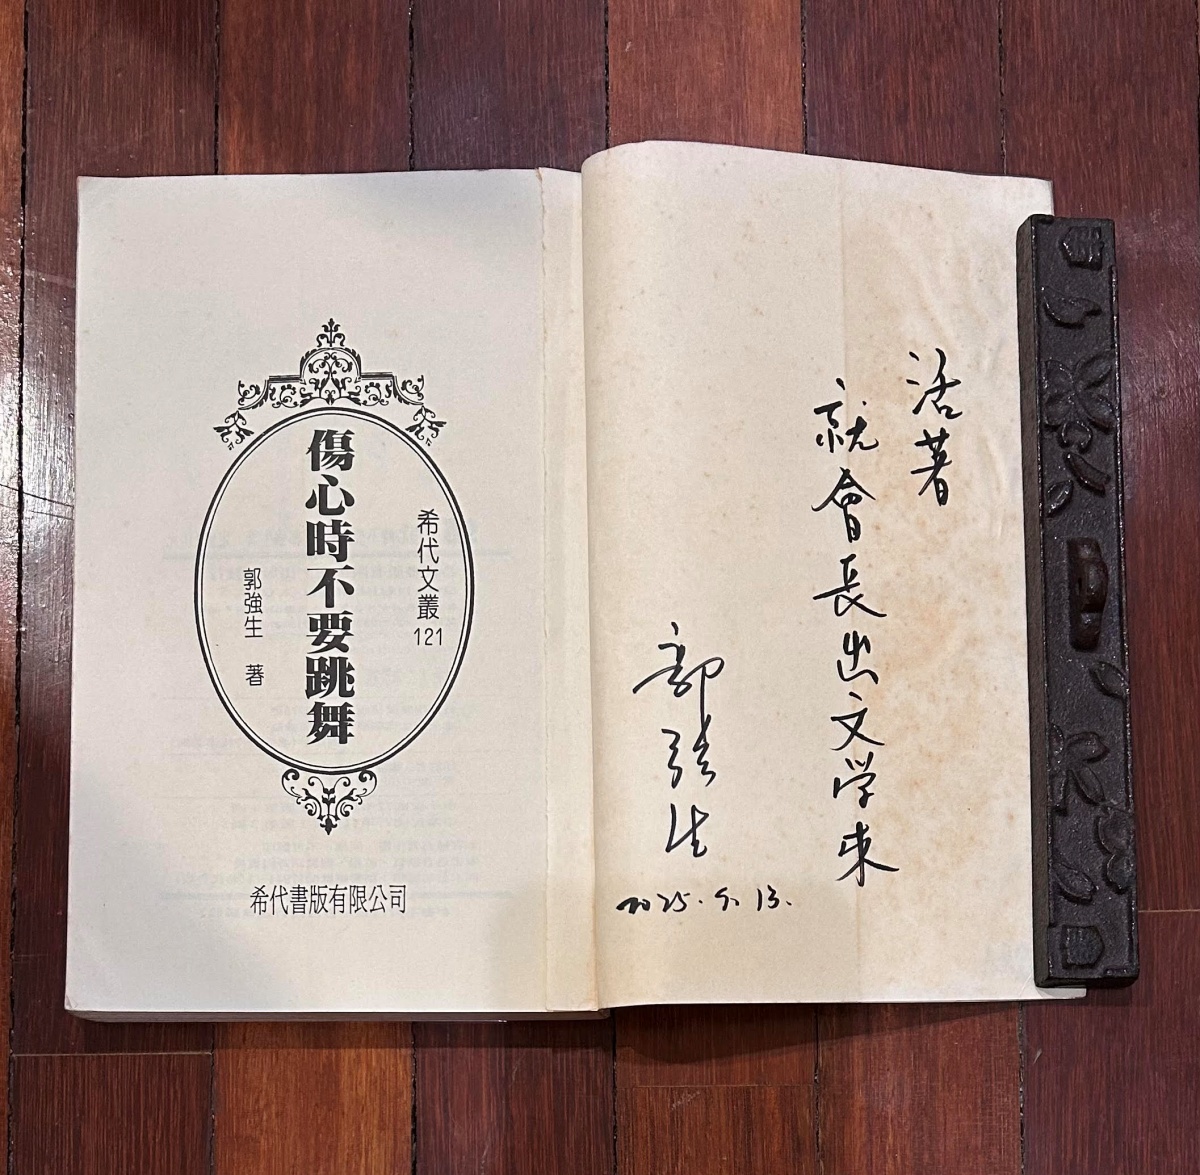 活著
就會長出文学来
郭強生
2025.9.13.
希代文叢121
傷心時不要跳舞
郭強生 著
希代書版有限公司